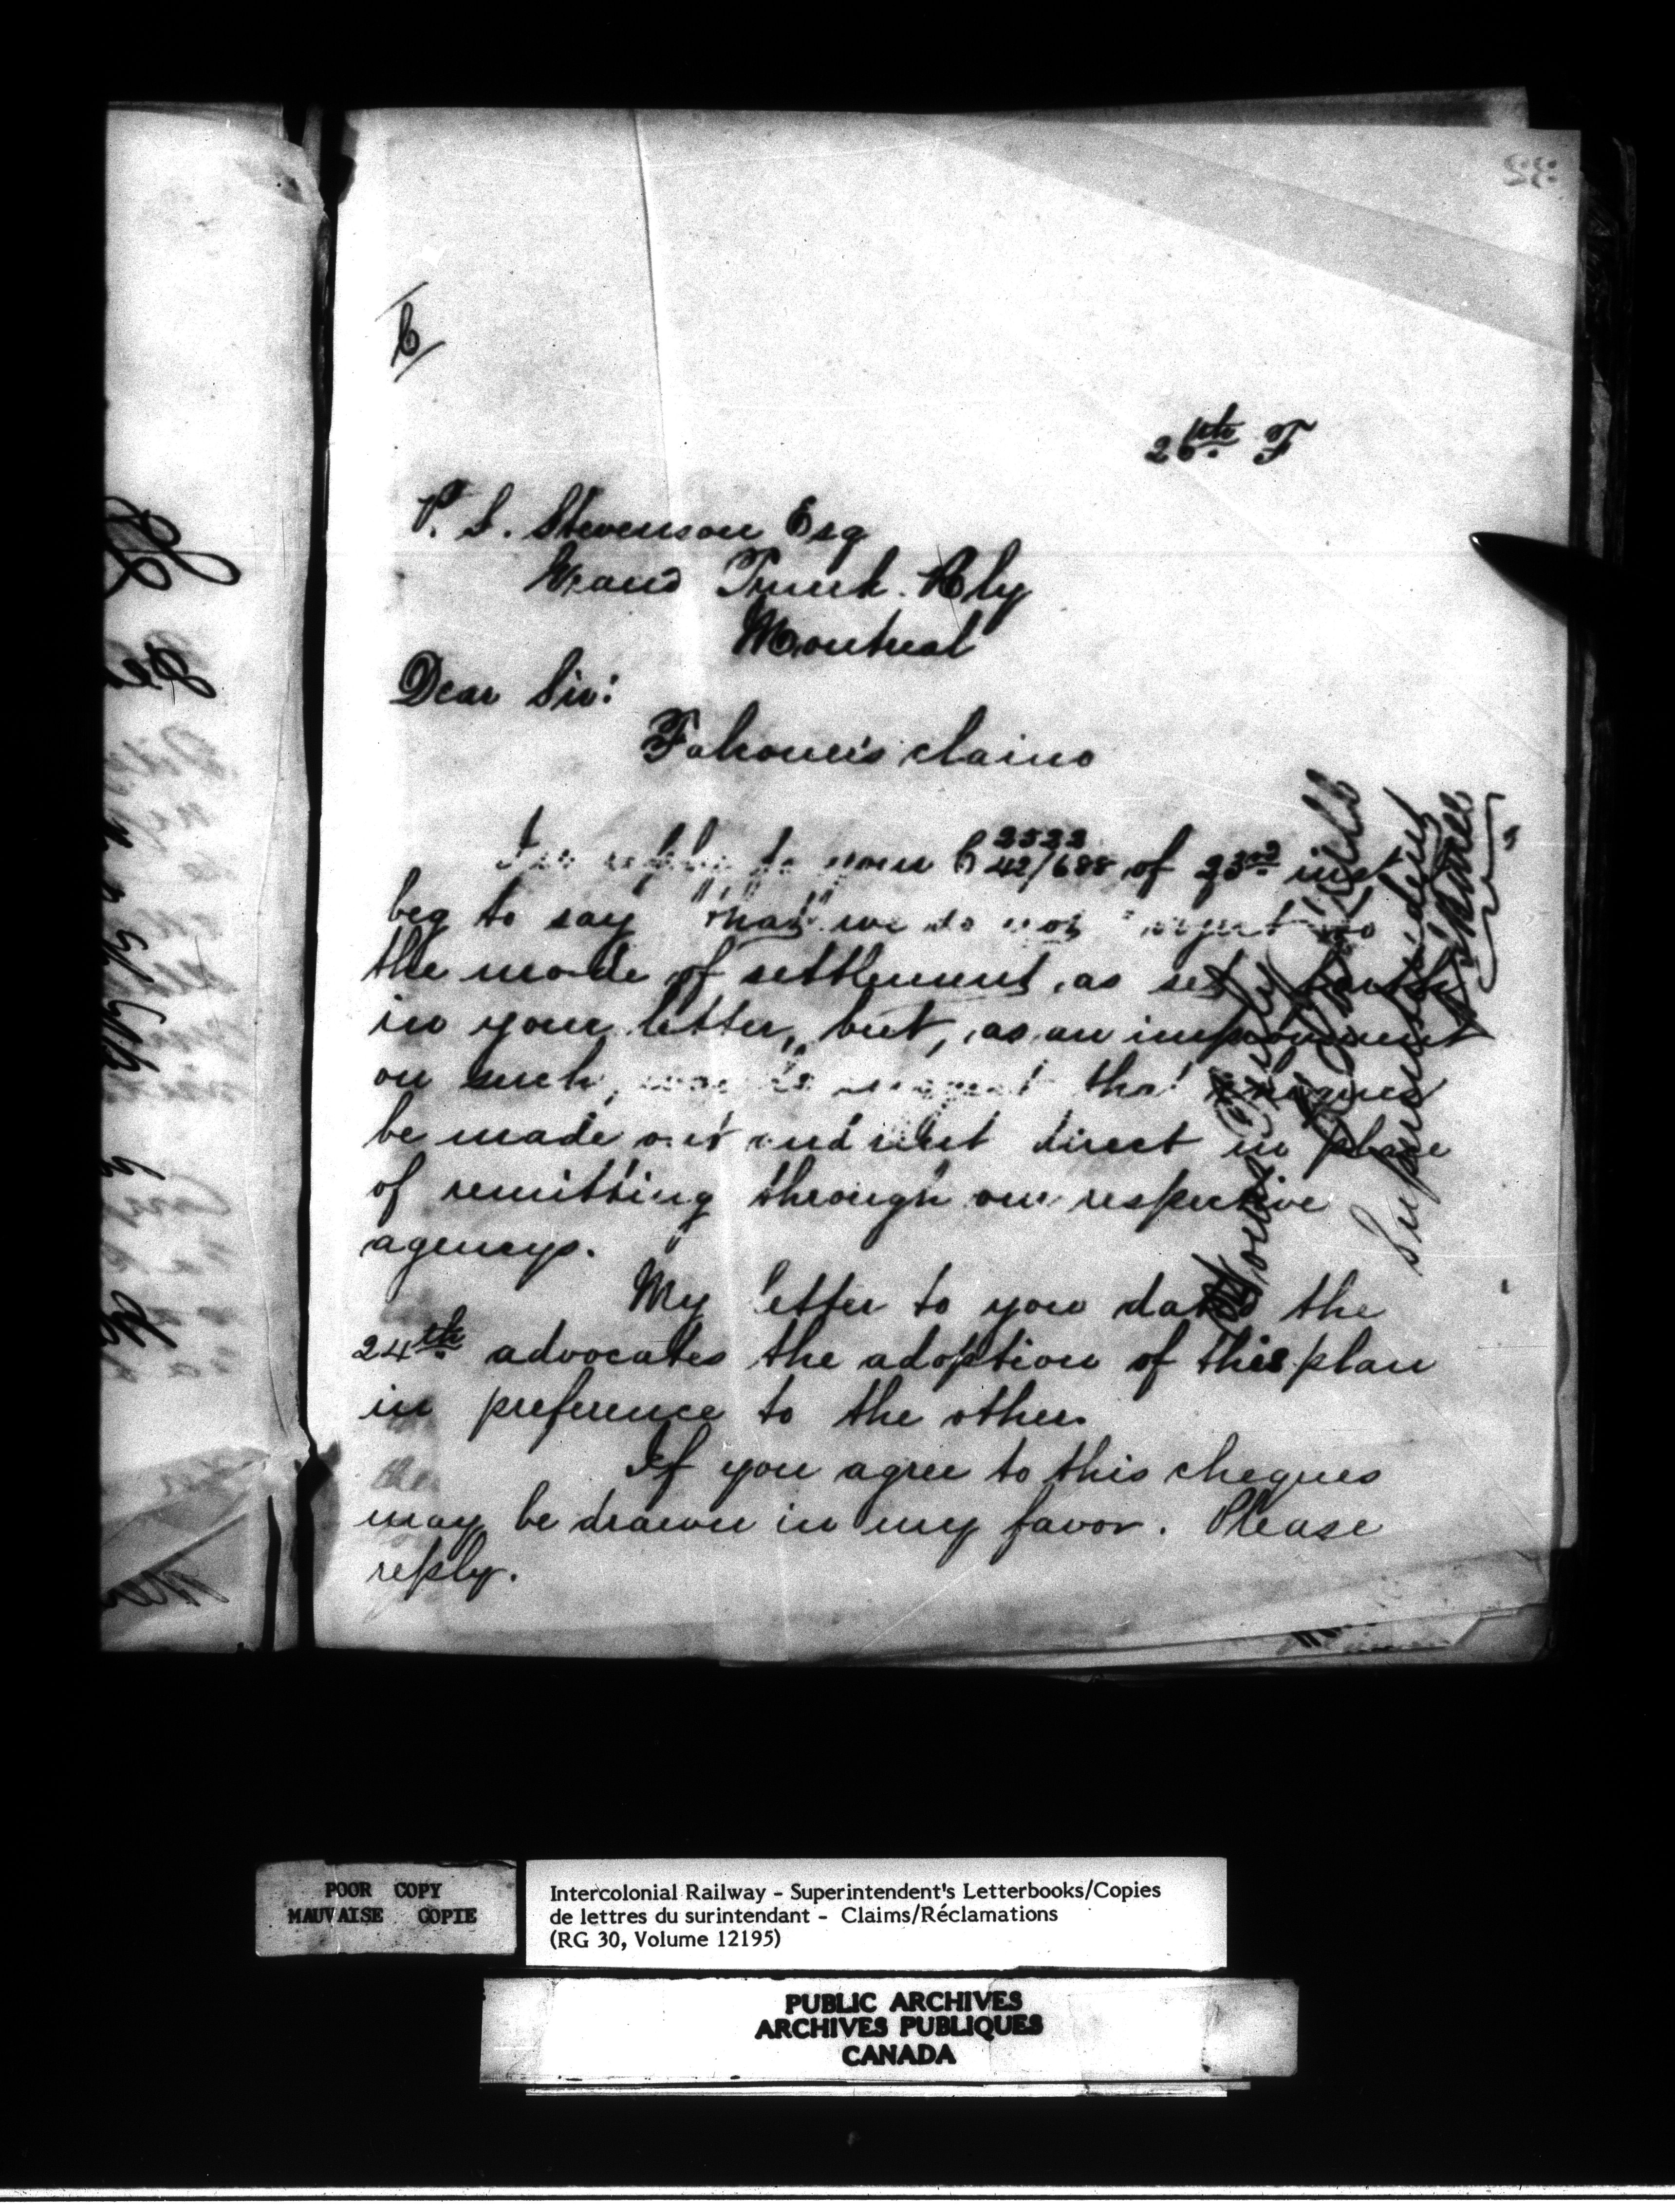 C
26th F
P. S. Stevenson Esq
Grand Trunk Rly
Montreal
Dear Sir:
claim
In reply to your C 2522 42/688 of 23rd inst
beg to say that we do not object to
the mode of settlement, as set forth
in your letter, but, as an improvement
on such, would suggest that cheques
be made out and sent direct in place
of remitting through our respective
agencys.
My letter to you dated the
24th advocates the adoption of this plan
in preference to the other.
If you agree to this cheques
may be drawn in my favor. Please
reply.
Yours truly
Superintendent
POOR COPY
MAUVAISE COPIE
Intercolonial Railway - Superintendent's Letterbooks/Copies
de lettres du surintendant - Claims/Réclamations
(RG 30, Volume 12195)
PUBLIC ARCHIVES
ARCHIVES PUBLIQUES
CANADA